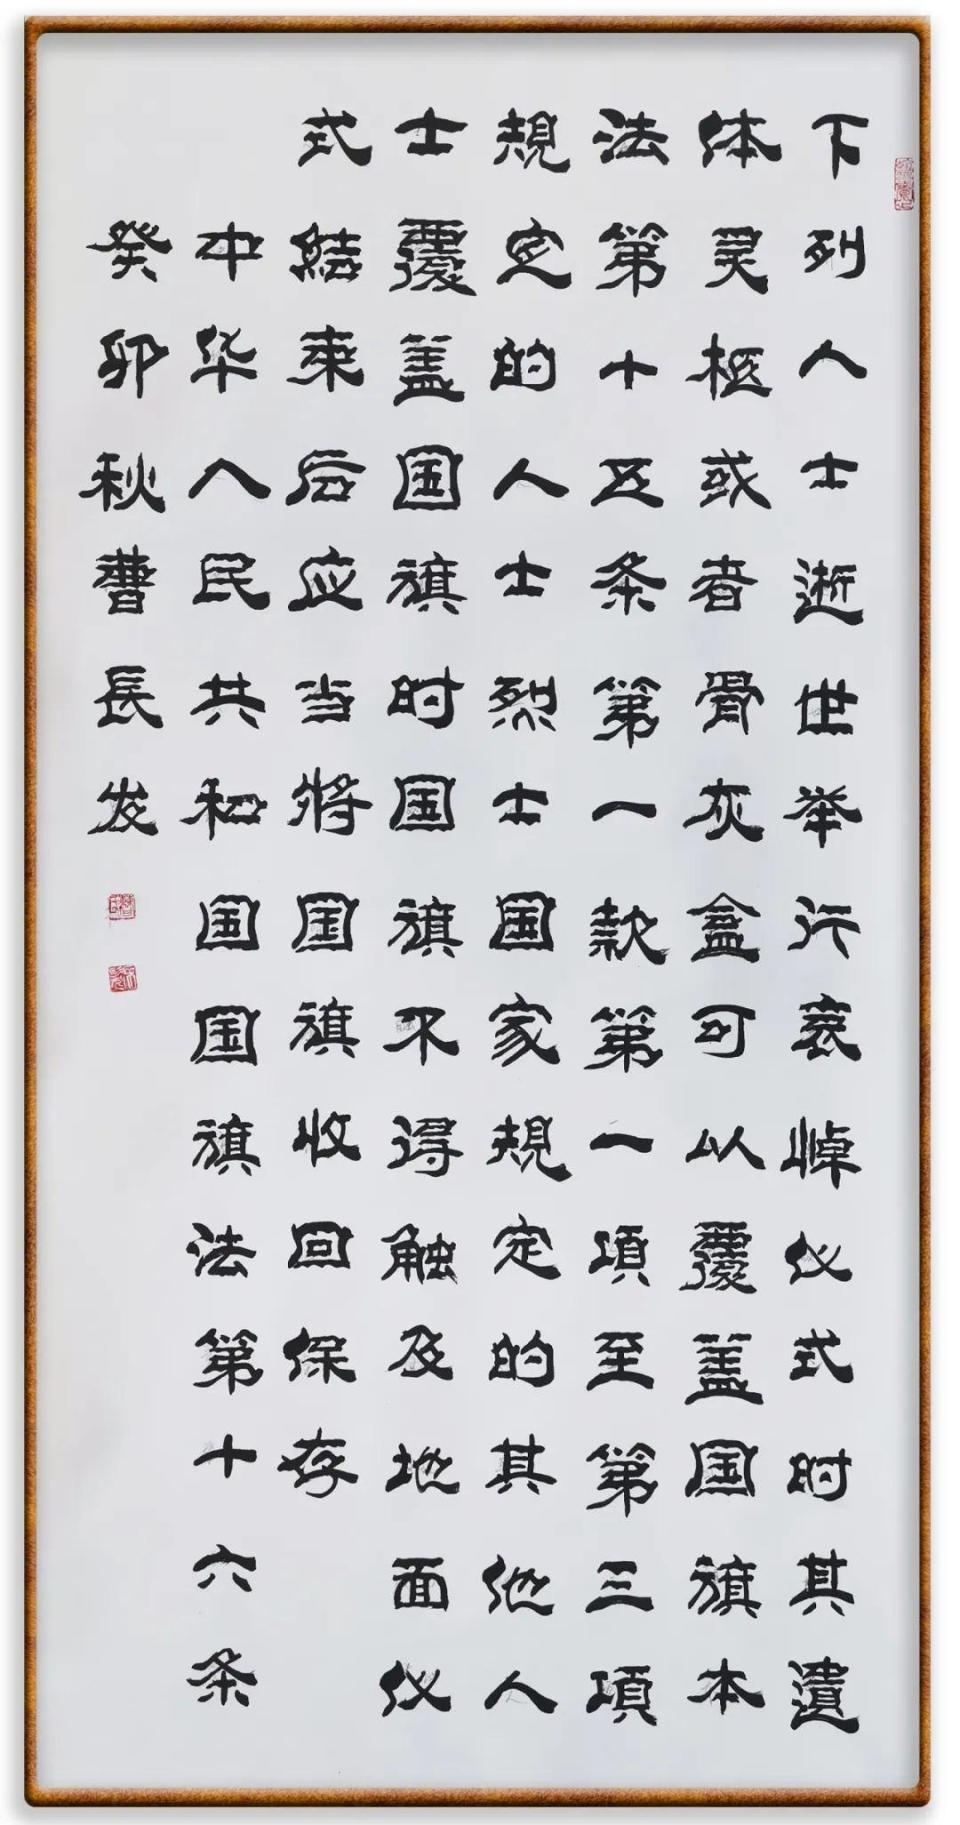 下列人士逝世举行哀悼仪式时其遗
体灵柩或者骨灰盒可以覆盖国旗本
法第十五条第一款第一項至第三項
規定的人士烈士国家規定的其他人
士覆盖国旗时国旗不得触及地面仪
式结束后应当将国旗收回保存
中华人民共和国国旗法第十六条
癸卯秋曹長发